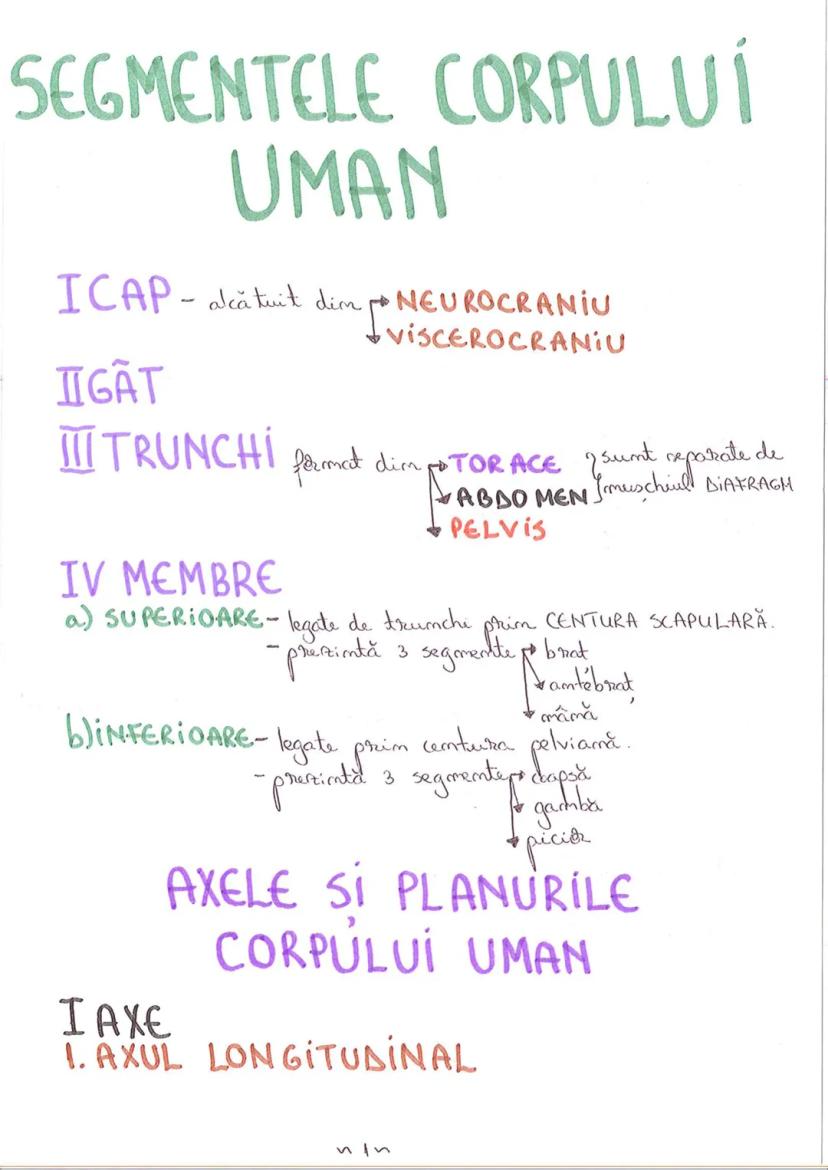 SEGMENTELE CORPULUI
UMAN
I CAP - alcătuit din NEUROCRANIU
VISCEROCRANIU
II GÂT
III TRUNCHI format din TORACE sunt separate de
ABDOMEN muschiul DIAFRAGM
PELVIS
IV MEMBRE
a) SUPERIOARE - legate de trunchi prin CENTURA SCAPULARĂ.
- prezintă 3 segmente brat
antebraț
mână
b) INFERIOARE - legate prin centura pelviană.
- prezintă 3 segmente coapsă
gambă
picior
AXELE ȘI PLANURILE
CORPULUI UMAN
I AXE
1. AXUL LONGITUDINAL
~1~